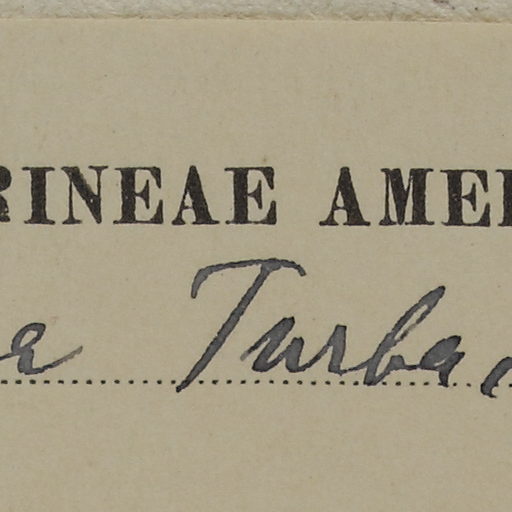 RINEAE AME
a Turba